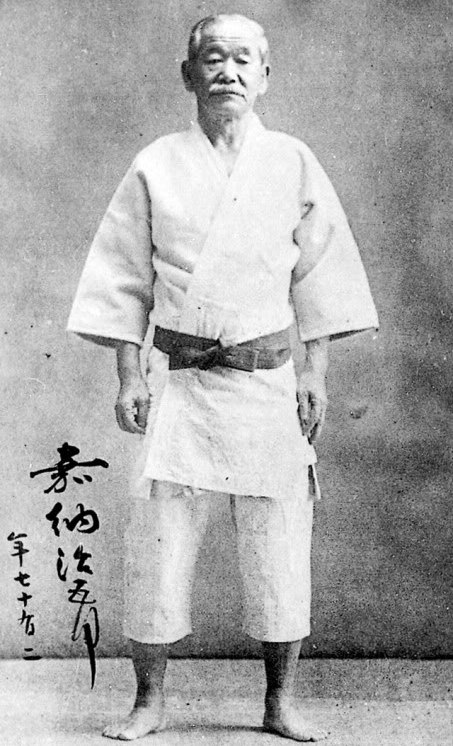 嘉納治五郎
年七十有二